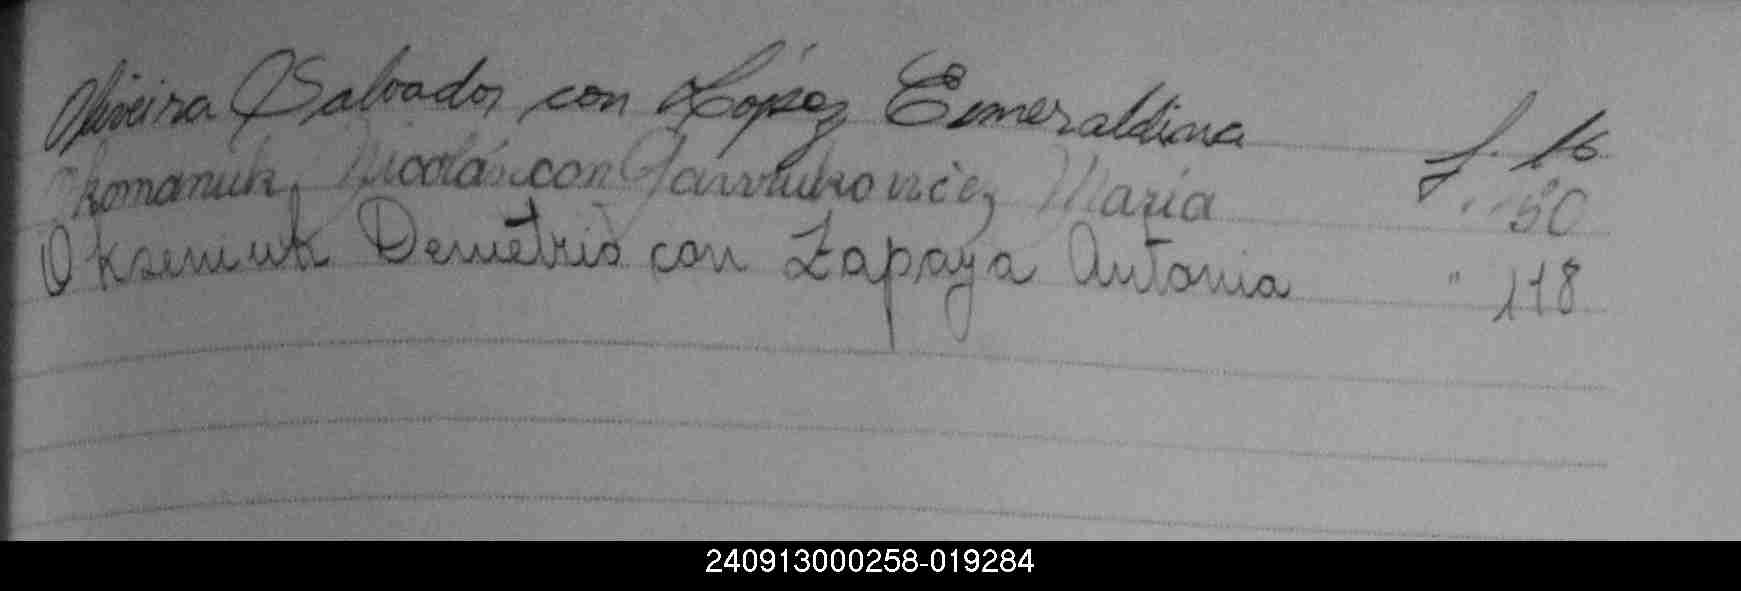 Oliveira Salvador con López Esmeraldina f. 16
Okomaniuk, Nicolás con María " 50
Okseniuk Demetrio con Zapaya Antonia " 118
240913000258-019284